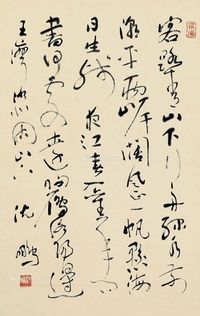 客路青山下行舟綠水前
潮平兩岸闊風正一帆懸海
日生殘夜江春入舊年鄉
書何處達歸雁洛陽邊
王灣次北固山下 沈鵬